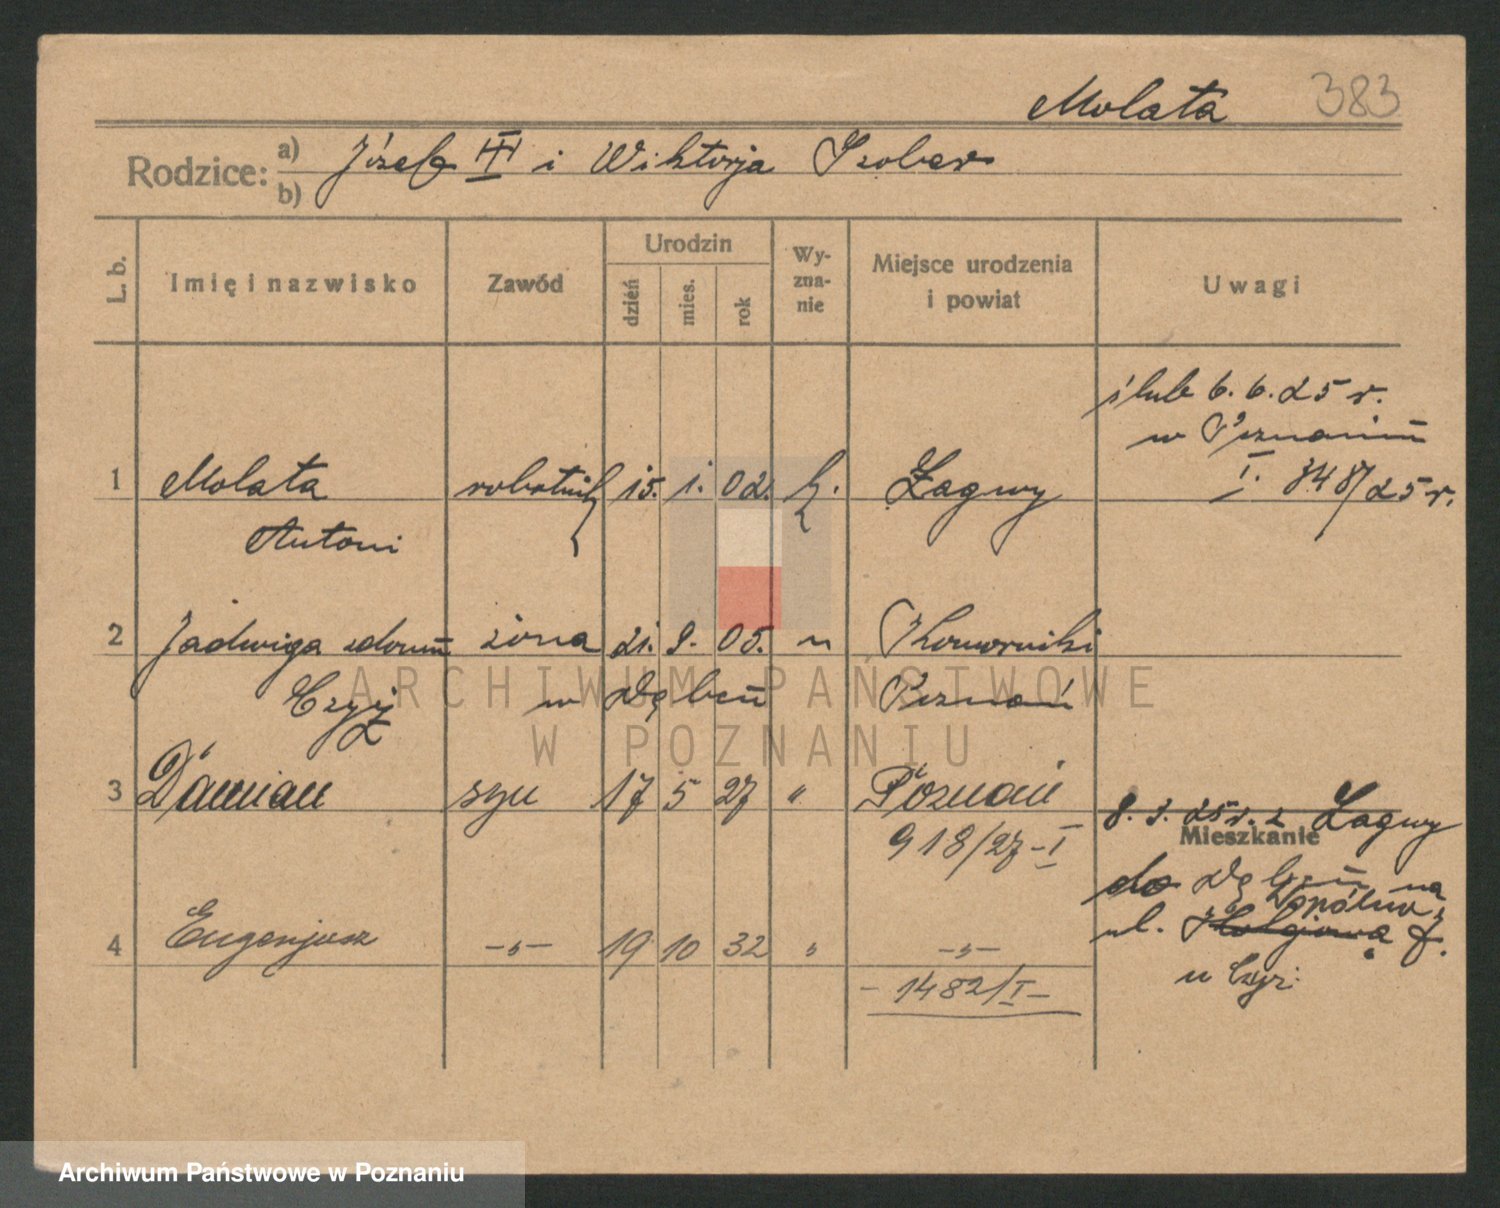 Molata 383
Rodzice: a) Józef III i Wiktorja
b)
L. b.
Imię i nazwisko
Zawód
Urodzin
dzień
mies.
rok
Wy-
zna-
nie
Miejsce urodzenia
i powiat
Uwagi
ślub 6. 6. 25 r.
w Poznaniu
I. 348/25 r.
1 Molata robotnik 15. 1. 02. k. Żagwy
Antoni
2 Jadwiga żona 21. 9. 05. " Komorniki
Czyż w Dębcu Poznań
ARCHIWUM PAŃSTWOWE
W POZNANIU
3 Damian syn 17 5 27 " Poznań
918/27-I
8. 3. 25 r. z Żagwy
Mieszkanie
do Dębcu na
Wspólna
ul. 7.
u Czyż
4 Eugenjusz -„- 19 10 32 " -„-
- 1482/I -
Archiwum Państwowe w Poznaniu